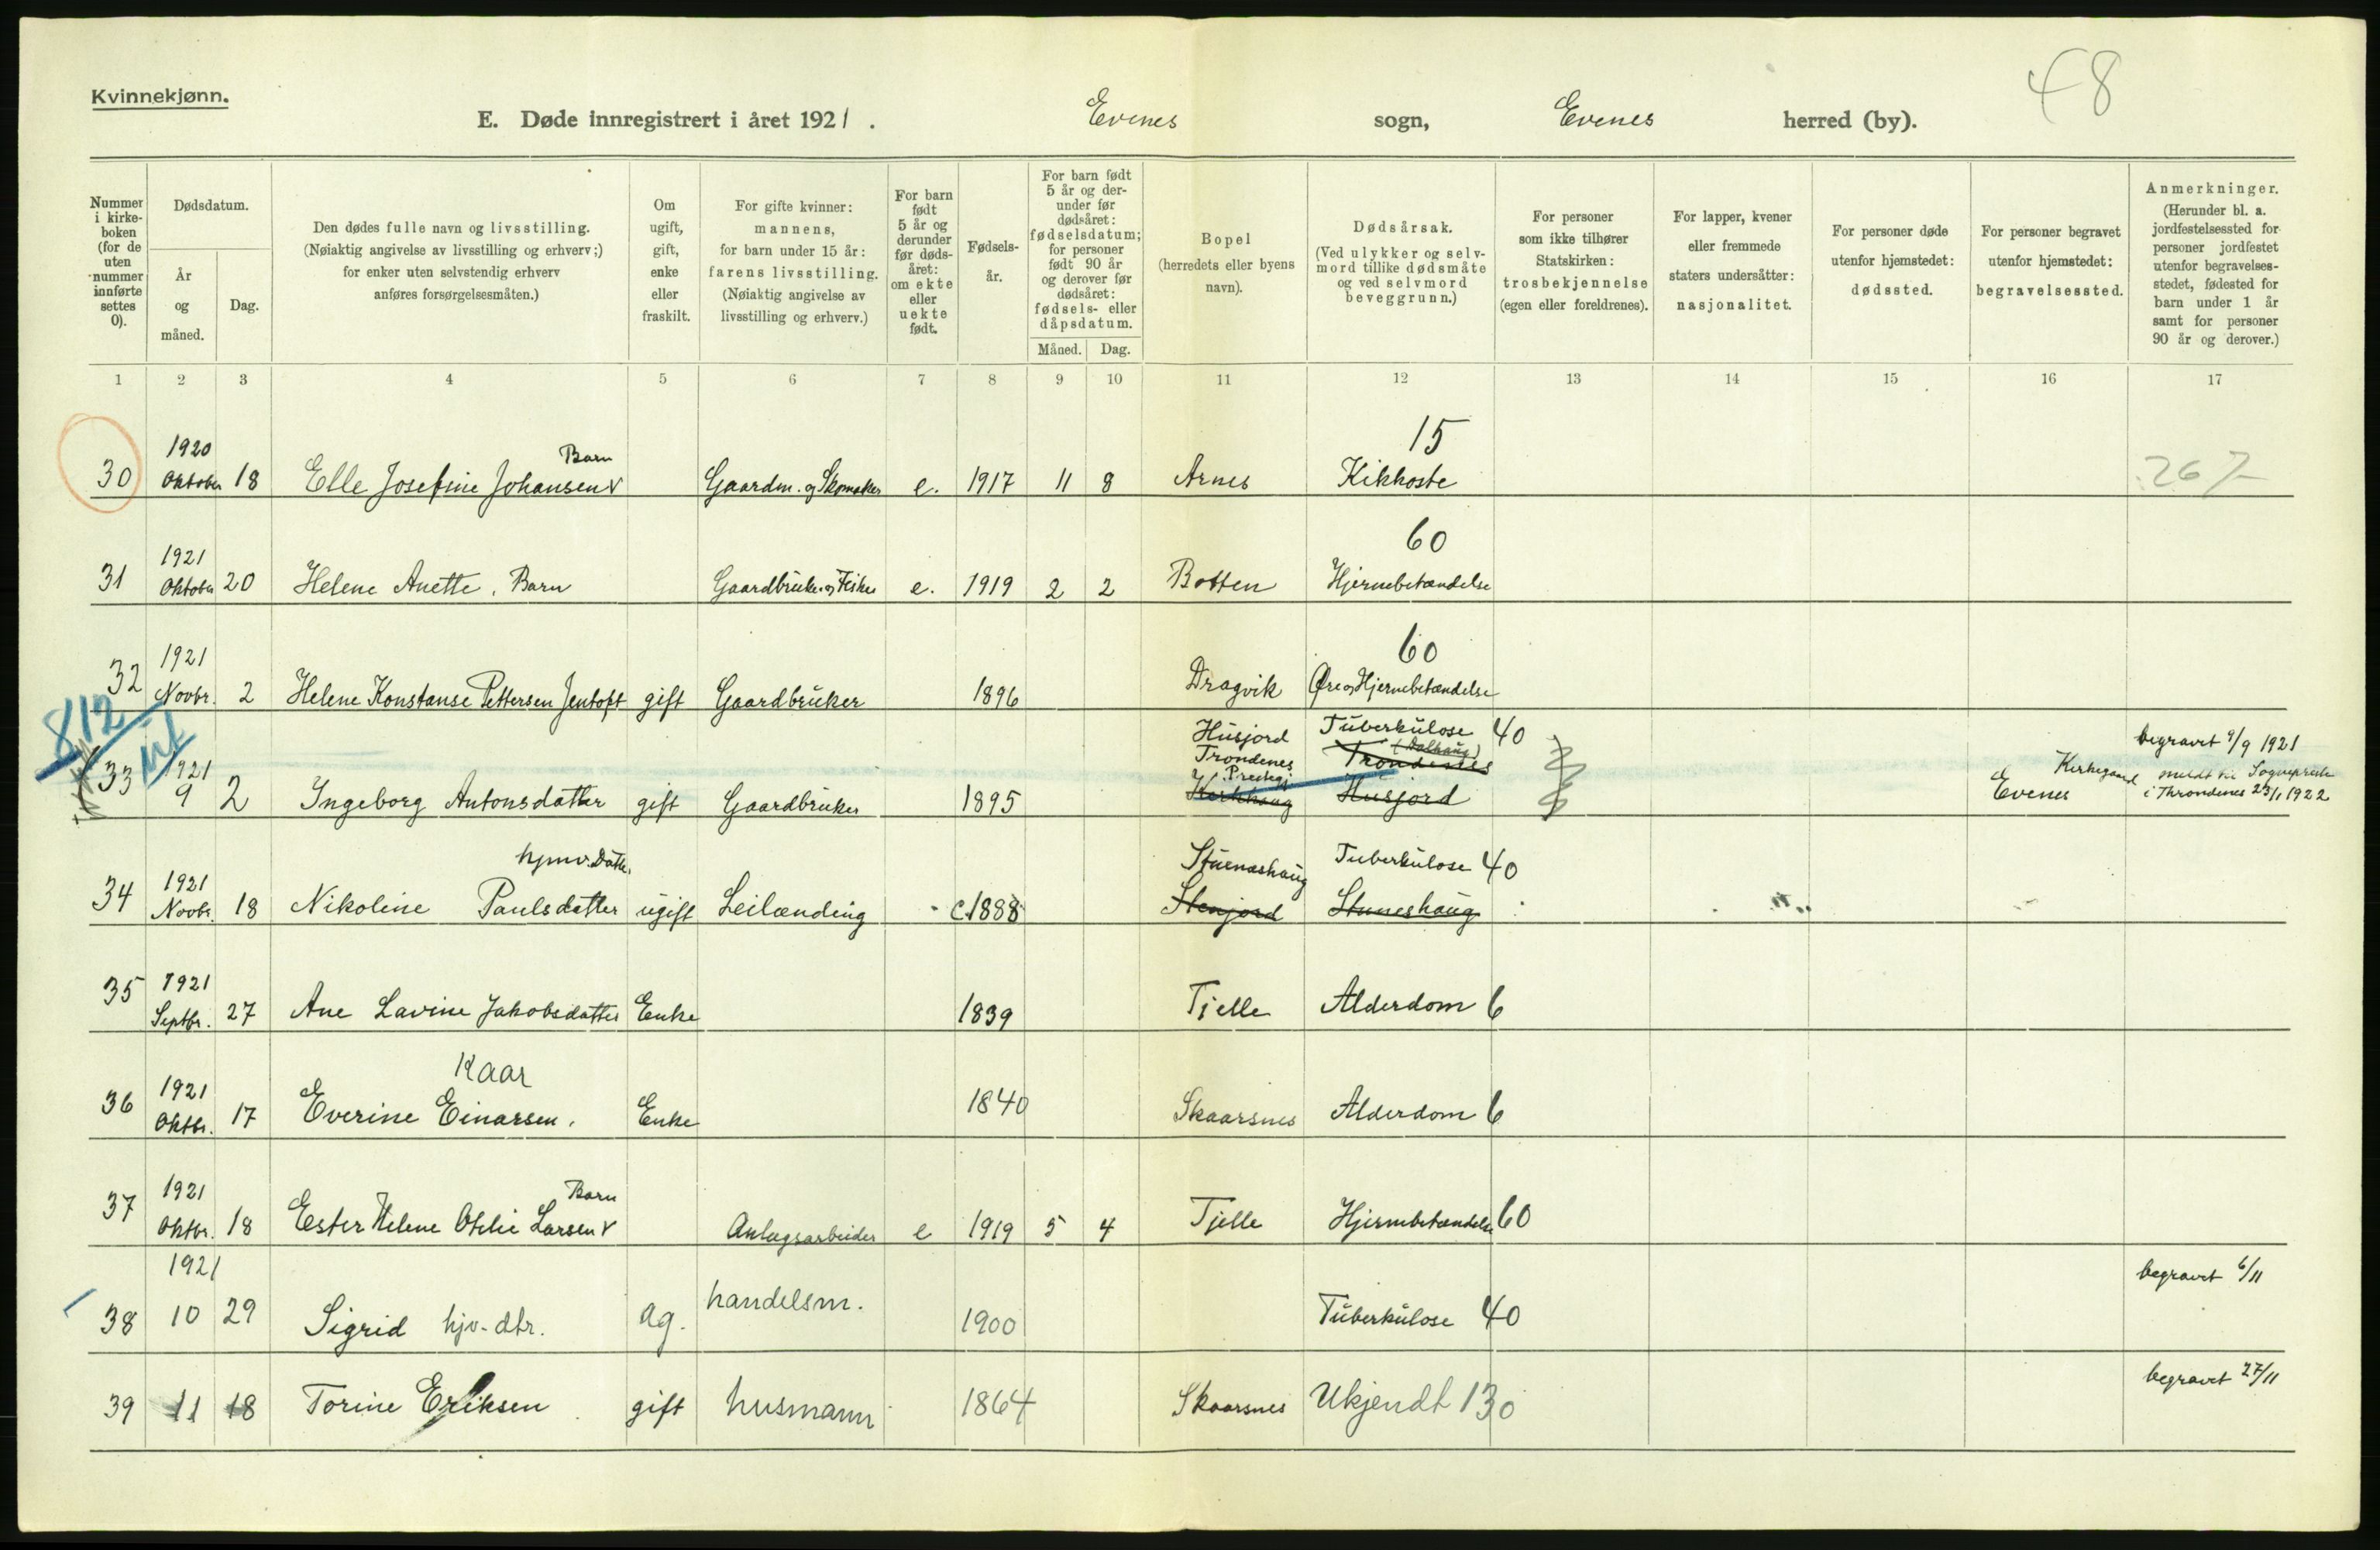 Kvinnekjønn.
48
E. Døde innregistrert i året 1921. Evenes sogn, Evenes herred (by).
Nummer i kirke-boken (for de uten nummer innførte settes 0).
Dødsdatum.
År og måned.
Dag.
Den dødes fulle navn og livsstilling.
(Nøiaktig angivelse av livsstilling og erhverv;)
for enker uten selvstendig erhverv
anføres forsørgelsesmåten.)
Om ugift, gift, enke eller fraskilt.
For gifte kvinner:
mannens,
for barn under 15 år:
farens livsstilling.
(Nøiaktig angivelse av
livsstilling og erhverv.)
For barn født 5 år og derunder før døds-året: om ekte eller uekte født.
Fødsels-år.
For barn født 5 år og der-under før dødsåret: fødselsdatum; for personer født 90 år og derover før dødsåret: fødsels- eller dåpsdatum.
Måned. Dag.
Bopel
(herredets eller byens
navn).
Dødsårsak.
(Ved ulykker og selv-
mord tillike dødsmåte
og ved selvmord
beveggrunn.)
For personer
som ikke tilhører
Statskirken:
trosbekjennelse
(egen eller foreldrenes).
For lapper, kvener
eller fremmede
staters undersåtter:
nasjonalitet.
For personer døde
utenfor hjemstedet:
dødssted.
For personer begravet
utenfor hjemstedet:
begravelsessted.
Anmerkninger.
(Herunder bl. a.
jordfestelsessted for
personer jordfestet
utenfor begravelses-
stedet, fødested for
barn under 1 år
samt for personer
90 år og derover.)
1 2 3 4 5 6 7 8 9 10 11 12 13 14 15 16 17
1920 Barn 15
30 Oktober 18 Elle Josefine Johansen Gaardm. og Skomaker e. 1917 11 8 Arnes Kikhoste 267
1921 60
31 Oktober 20 Helene Anette. Barn Gaardbruker og Fisker e. 1919 2 2 Botten Hjernebetændelse
1921 60
32 Novbr. 2 Helene Konstanse Pettersen Jentoft gift Gaardbruker 1896 Dragvik Øre og Hjernebetændelse
812
Husjord Tuberkulose 40 begravet 9/9 1921
Trondenes (Dalhaug) Trondenes
Prestegj. Kirkegaard meldt til Sogneprest
33 1921 9 2 Ingeborg Antonsdatter gift Gaardbruker 1895 Kirkhaug Husjord Evenes i Throndenes 23/1 1922
hjmv. Datter Stuneshaug Tuberkulose 40
34 1921 Novbr. 18 Nikoline Paulsdatter ugift Leilænding c. 1888 Stenjord Stuneshaug
35 1921 Septbr. 27 Ane Lavine Jakobsdatter Enke 1839 Tjelle Alderdom 6
Kaar
36 1921 Oktbr. 17 Everine Einarsen. Enke 1840 Skaarsnes Alderdom 6
Barn
37 1921 Oktbr. 18 Ester Helene Otelie Larsen Anlægsarbeider e 1919 5 4 Tjelle Hjernebetændelse 60
1921 begravet 6/11
38 10 29 Sigrid hjv-dtr. ug. handelsm. 1900 Tuberkulose 40
begravet 27/11
39 11 18 Torine Eriksen gift husmann 1864 Skaarsnes Ukjendt 130